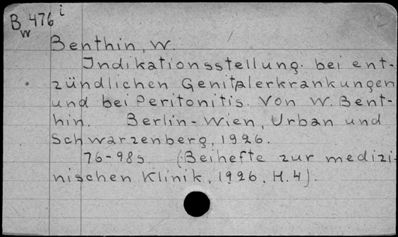 B 476 i
w
Benthin, W.
Indikationsstellung bei ent-
zündlichen Genitalerkrankungen
und bei Peritonitis. Von W. Bent-
hin. Berlin-Wien, Urban und
Schwarzenberg, 1926.
76-98s (Beihefte zur medizi-
nischen Klinik, 1926, H.4).